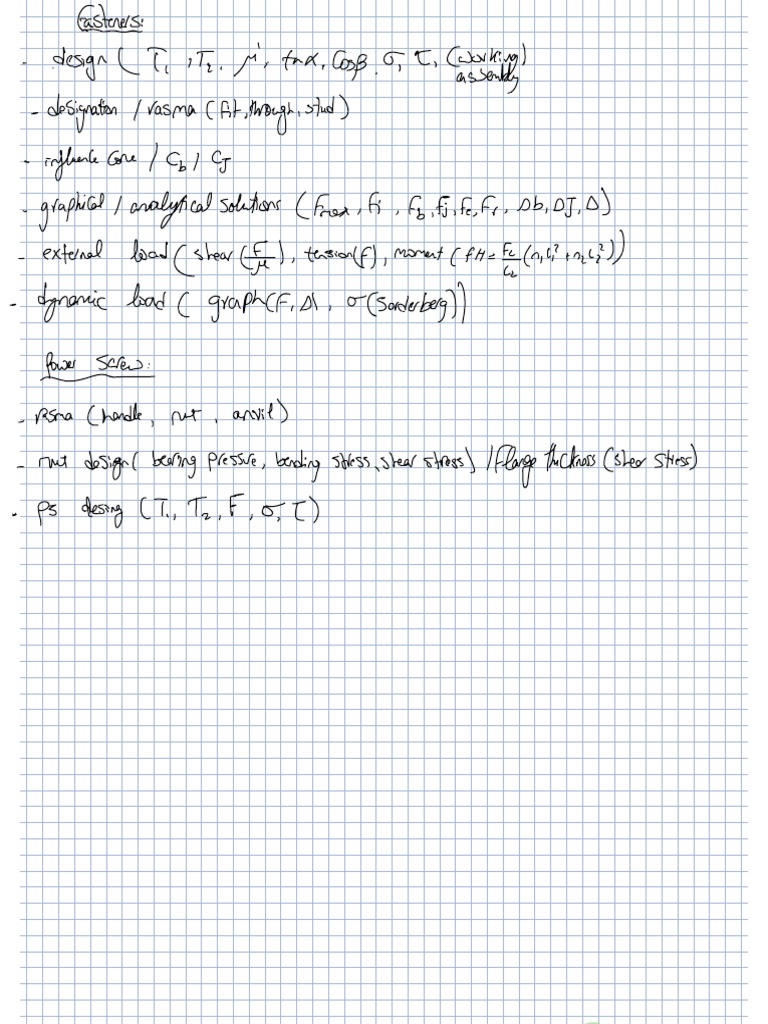 Fasteners:
- design ( T₁ , T₂ , μ', tanα, Cosβ, σ, τ, (working)
assembly
- designation / rasma ( fit, through, stud )
- influence Cone / Cb / CJ
- graphical / analytical solutions ( Fmax, Fi , Fb, Fj, Fe, Fr, Δb, ΔJ, Δ )
- external load ( shear ( F/μ ), tension (F), moment ( FH = FeL/L₂ ( n₁L₁² + n₂L₂² ) )
- dynamic load ( graph(F, Δ), σ (Sorderberg) )
Power Screw:
- rsma (handle, nut, anvil)
- nut design ( bearing pressure, bending stress, shear stress) / flange thickness (shear stress)
- ps desing ( T₁, T₂, F, σ, τ )